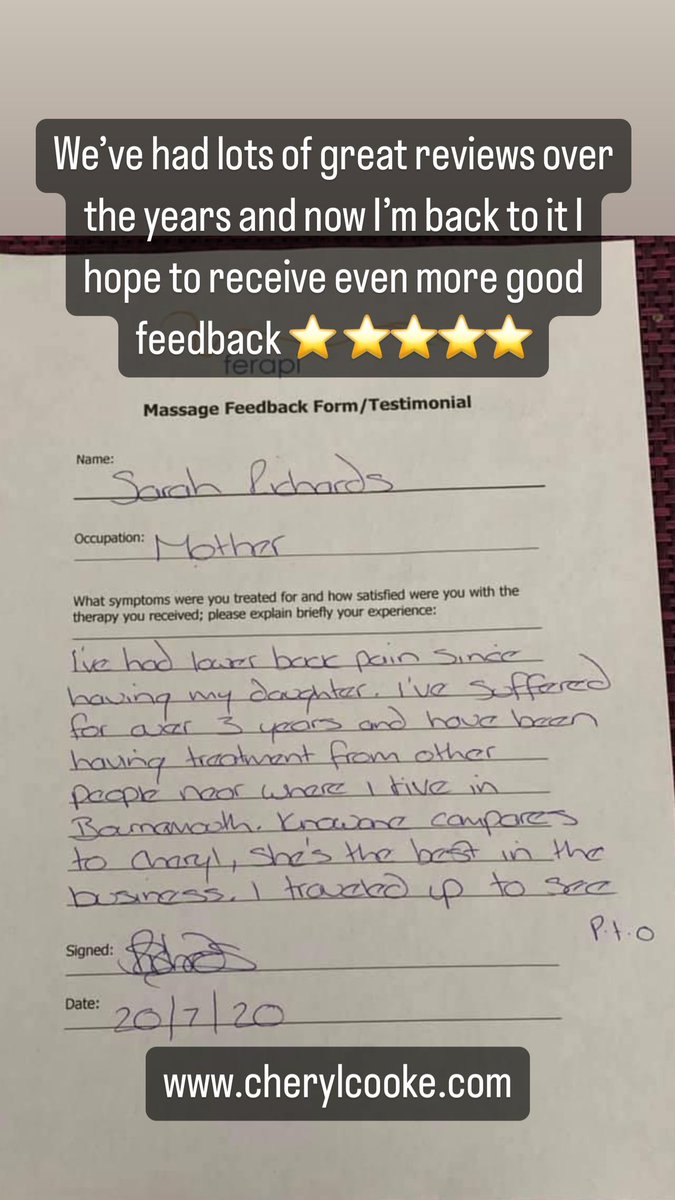 We've had lots of great reviews over
the years and now I'm back to it I
hope to receive even more good
feedback ⭐⭐⭐⭐⭐
ferapi
Massage Feedback Form/Testimonial
Name: Sarah Richards
Occupation: Mother
What symptoms were you treated for and how satisfied were you with the
therapy you received; please explain briefly your experience:
I've had lower back pain since
having my daughter. I've suffered
for over 3 years and have been
having treatment from other
people near where I live in
Bournemouth. Knowone compares
to Cheryl, she's the best in the
business. I traveled up to see
P.t.o
Signed: SRichards
Date: 20/7/20
www.cherylcooke.com